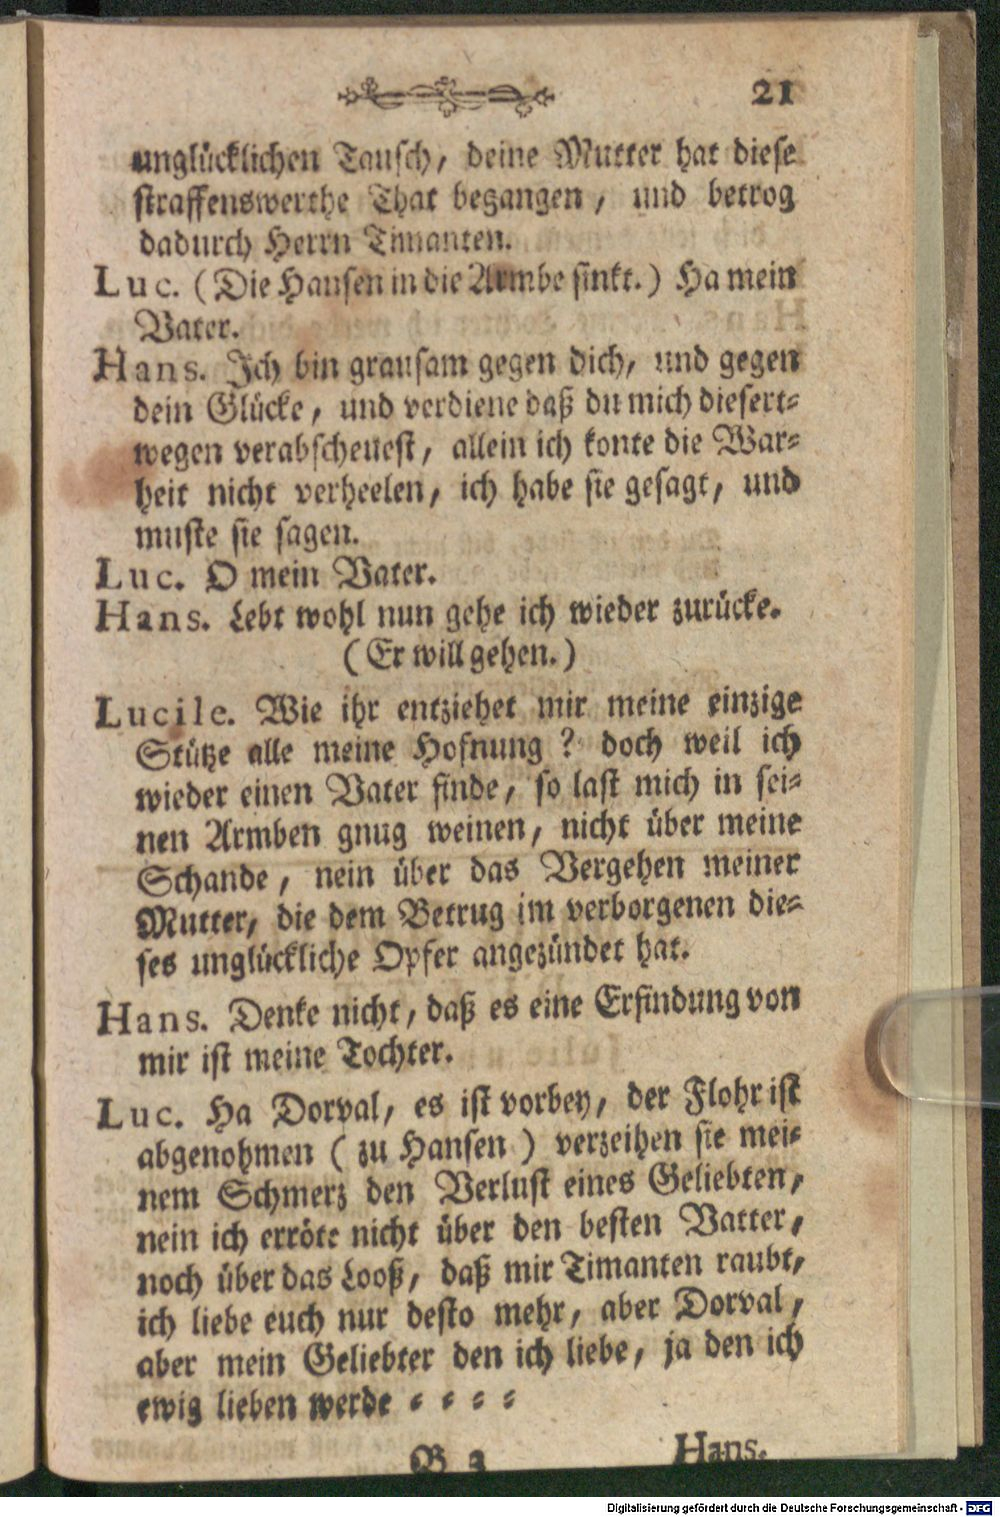 21
unglücklichen Tausch, deine Mutter hat diese
straffenswerthe That begangen, und betrog
dadurch Herrn Timanten.
Luc. (Die Hansen in die Armbe sinkt.) Ha mein
Vater.
Hans. Ich bin grausam gegen dich, und gegen
dein Glücke, und verdiene daß du mich diesert-
wegen verabscheuest, allein ich konte die War-
heit nicht verheelen, ich habe sie gesagt, und
muste sie sagen.
Luc. O mein Vater.
Hans. Lebt wohl nun gehe ich wieder zurücke.
(Er will gehen.)
Lucile. Wie ihr entziehet mir meine einzige
Stütze alle meine Hofnung? doch weil ich
wieder einen Vater finde, so last mich in sei-
nen Armben gnug weinen, nicht über meine
Schande, nein über das Vergehen meiner
Mutter, die dem Betrug im verborgenen die-
ses unglückliche Opfer angezündet hat.
Hans. Denke nicht, daß es eine Erfindung von
mir ist meine Tochter.
Luc. Ha Dorval, es ist vorbey, der Flohr ist
abgenohmen (zu Hansen) verzeihen sie mei-
nem Schmerz den Verlust eines Geliebten,
nein ich erröte nicht über den besten Vatter,
noch über das Looß, daß mir Timanten raubt,
ich liebe euch nur desto mehr, aber Dorval,
aber mein Geliebter den ich liebe, ja den ich
ewig lieben werde - - - -
B 3 Hans.
Digitalisierung gefördert durch die Deutsche Forschungsgemeinschaft - DFG